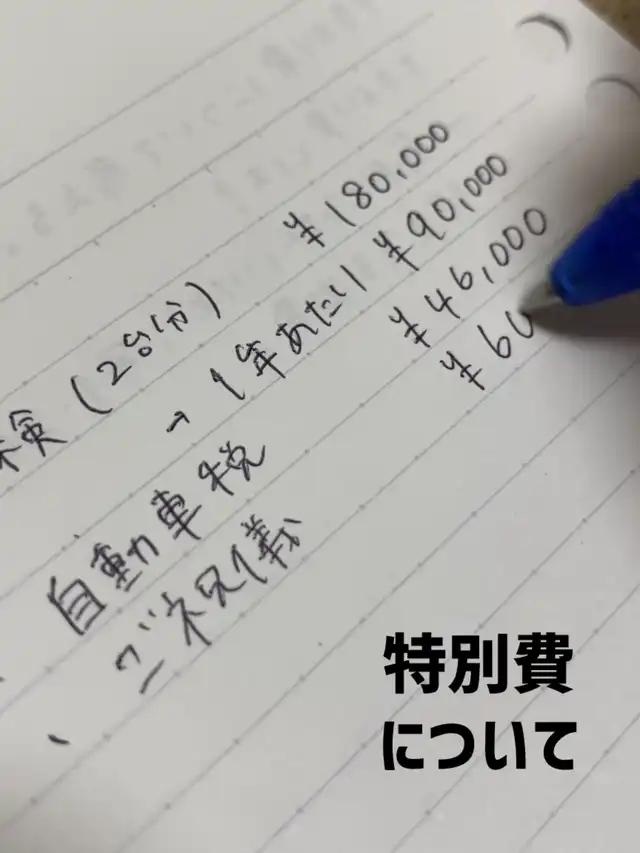 検(2台分) ¥180,000
→1年あたり ¥90,000
自動車税 ¥46,000
ご祝儀 ¥60
特別費
について